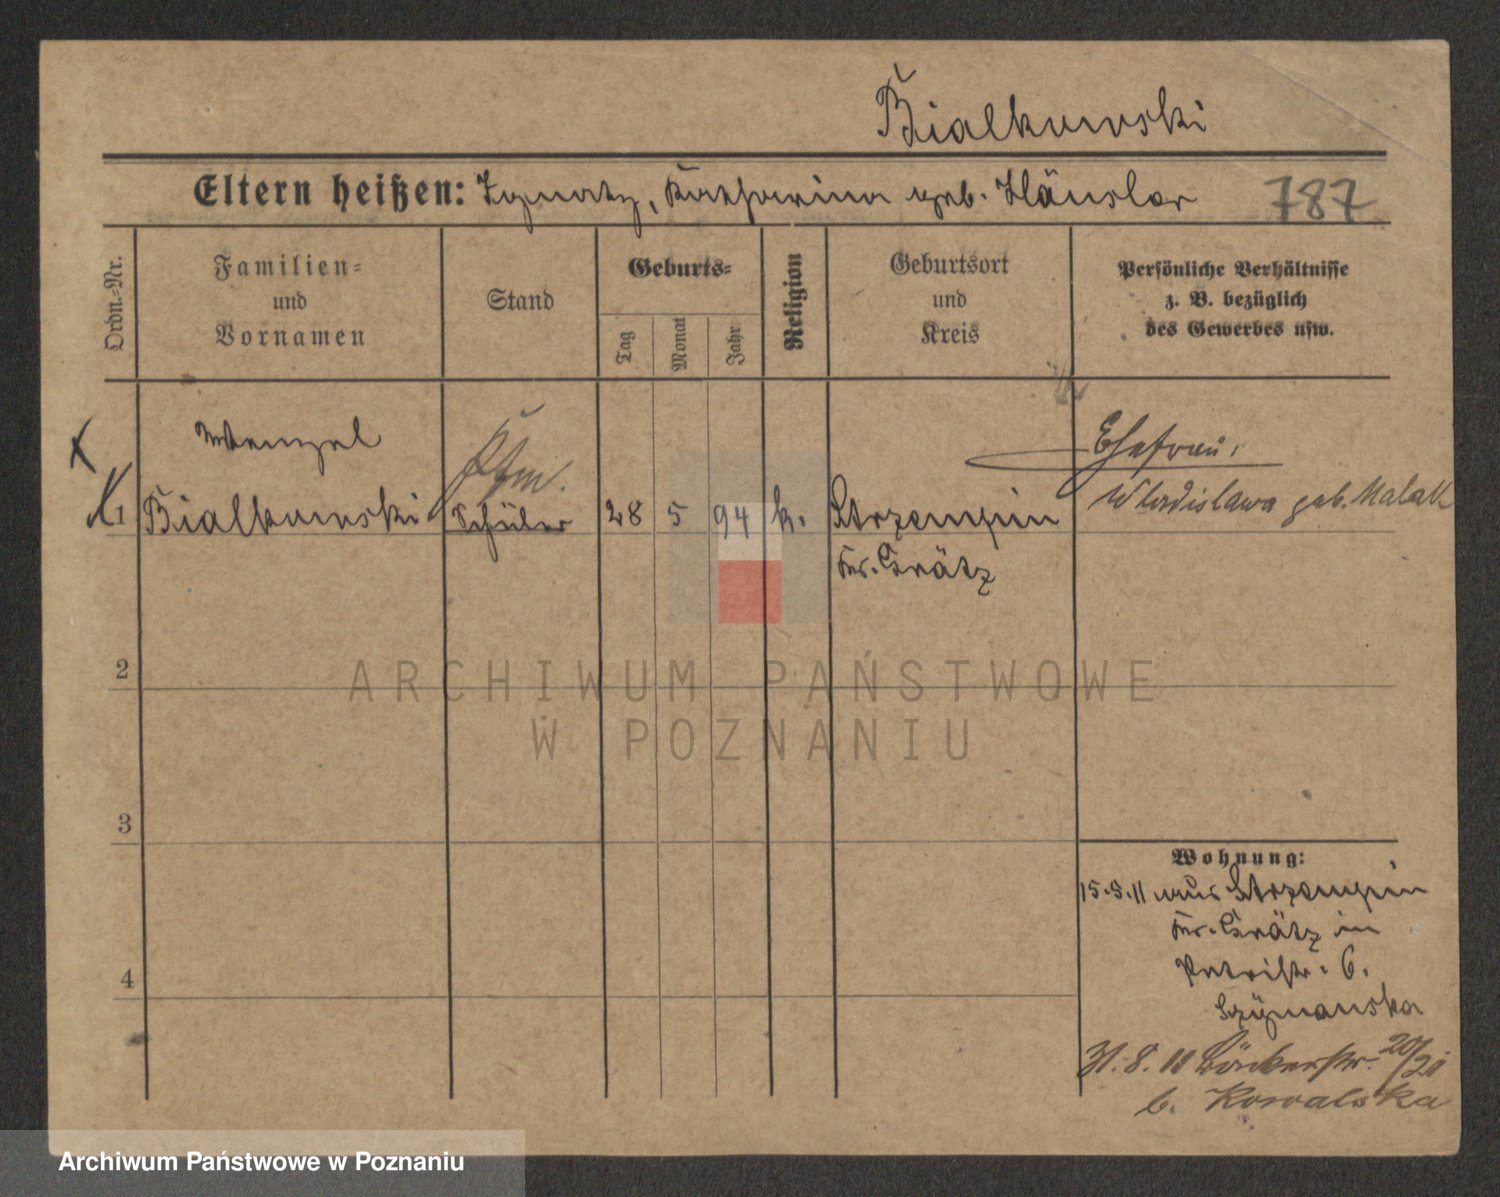 Bialkowski
Eltern heißen: Ignatz, Katharina geb. Häusler 787
Ordn.-Nr.
Familien-
und
Vornamen
Stand
Geburts-
Tag
Monat
Jahr
Religion
Geburtsort
und
Kreis
Persönliche Verhältnisse
z. B. bezüglich
des Gewerbes usw.
Wenzel
Kfm.
Ehefrau:
1 Bialkowski Schüler 28 5 94 k. Strzempin
Wladislawa geb.
Kr. Grätz
2
3
4
Wohnung:
15.9.11 aus Strzempin
Kr. Grätz in
Petristr. 6.
Szymanska
31.8. Bäckerstr. 20/21
b. Kowalska
ARCHIWUM PAŃSTWOWE
W POZNANIU
Archiwum Państwowe w Poznaniu